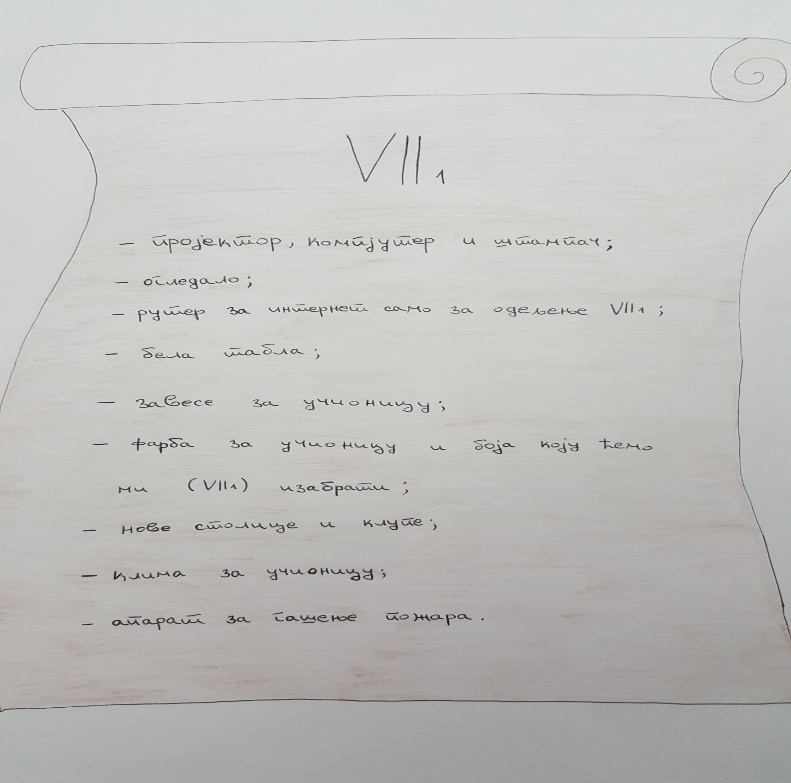 VII 1
- пројектор, компјутер и штампач;
- огледало;
- рутер за интернет само за одељење VII1;
- бела табла;
- завесе за учионицу;
- фарба за учионицу и боја коју ћемо
ми (VII1) изабрати;
- нове столице и клупе;
- клима за учионицу;
- апарат за гашење пожара.